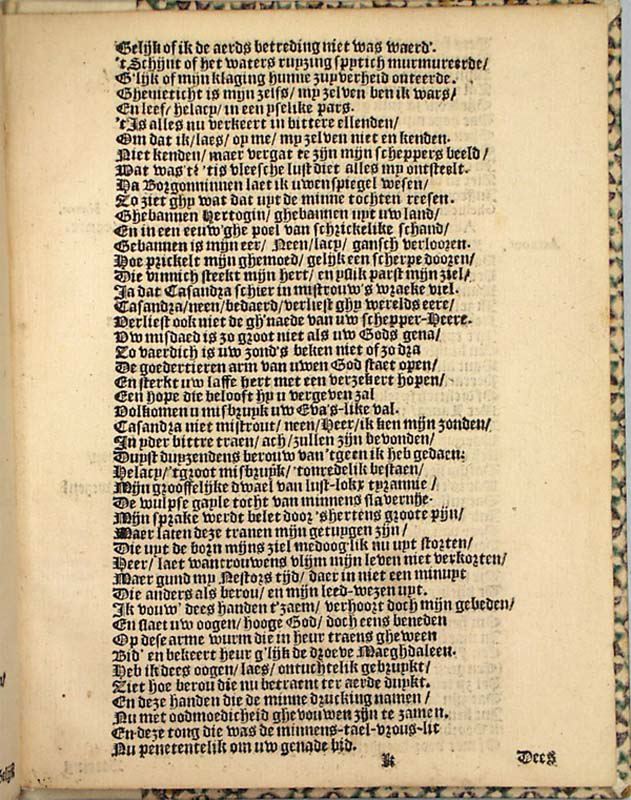 Gelijk of ik de aerds betreding niet was waerd'.
't Schijnt of het waters ruyzing spytich murmureerde/
G'lijk of mijn klaging hunne zuyverheid onteerde.
Ghenieticht is mijn zelfs/ my zelven ben ik wars/
En leef/ helacy/ in een yselike pars.
't Is alles nu verkeert in bittere ellenden/
Om dat ik/ laes/ oy me/ my zelven niet en kenden.
Niet kenden/ maer vergat te zijn mijn scheppers beeld/
Wat was 't? 'tis vleesche lust diet alles my ontsteelt.
Ha Borgonninnen laet ik uwen spiegel wesen/
Zo ziet ghy wat dat uyt de minne tochten reesen.
Ghebannen Hertogin/ ghebannen uyt uw land/
En in een eeuw'ghe poel van schrickelike schand/
Gebannen is mijn eer/ Neen/ lacy/ gansch verlooren.
Hoe prickelt mijn ghemoed/ gelijk een scherpe dooren/
Die vinnich steekt mijn hert/ en yslik parst mijn ziel/
Ja dat Casandra schier in mistrouw's wraeke viel.
Casandra/ neen/ bedaerd/ verliest ghy werelds eere/
Verliest ook niet de gh'naede van uw schepper-Heere.
Uw misdaed is zo groot niet als uw Gods gena/
Zo vaerdich is uw zond's beken niet of zo dra
De goedertieren arm van uwen God staet open/
En sterkt uw laffe hert met een verzekert hopen/
Een hope die belooft hy u vergeven zal
Volkomen u misbruyk uw Eva's-like val.
Casandra niet mistrout/ neen/ Heer/ ik ken mijn zonden/
In yder bittre traen/ ach/ zullen zijn bevonden/
Duyst duyzendens berouw van 'tgeen ik heb gedaen:
Helacy/ 'tgroot misbruyk/ 'tonredelik bestaen/
Mijn grooffelijke dwael van lust-lokx tyrannie/
De wulpse gayle tocht van minnens slavernye.
Mijn sprake werdt belet door 'shertens groote pijn/
Maer laten deze tranen mijn getuygen zijn/
Die uyt de born mijns ziel medoog'lik nu uyt storten/
Heer/ laet wantrouwens vlijm mijn leven niet verkorten/
Maer gund my Nestors tijd/ daer in niet een minuyt
Die anders als berou/ en mijn leed-wezen uyt.
Ik vouw' dees handen t'zaem/ verhoort doch mijn gebeden/
En slaet uw oogen/ hooge God/ doch eens beneden
Op dese arme wurm die in heur traens gheween
Bid' en bekeert heur g'lijk de droeve Maeghdaleen.
Heb ik dees oogen/ laes/ ontuchtelik gebruykt/
Ziet hoe berou die nu betraent ter aerde duykt.
En deze handen die de minne drucking namen/
Nu met oodmoedicheid ghevouwen zijn te zamen.
En deze tong die was de minnens-tael-vrous-lit
Nu penetentelik om uw genade bid.
K Dees